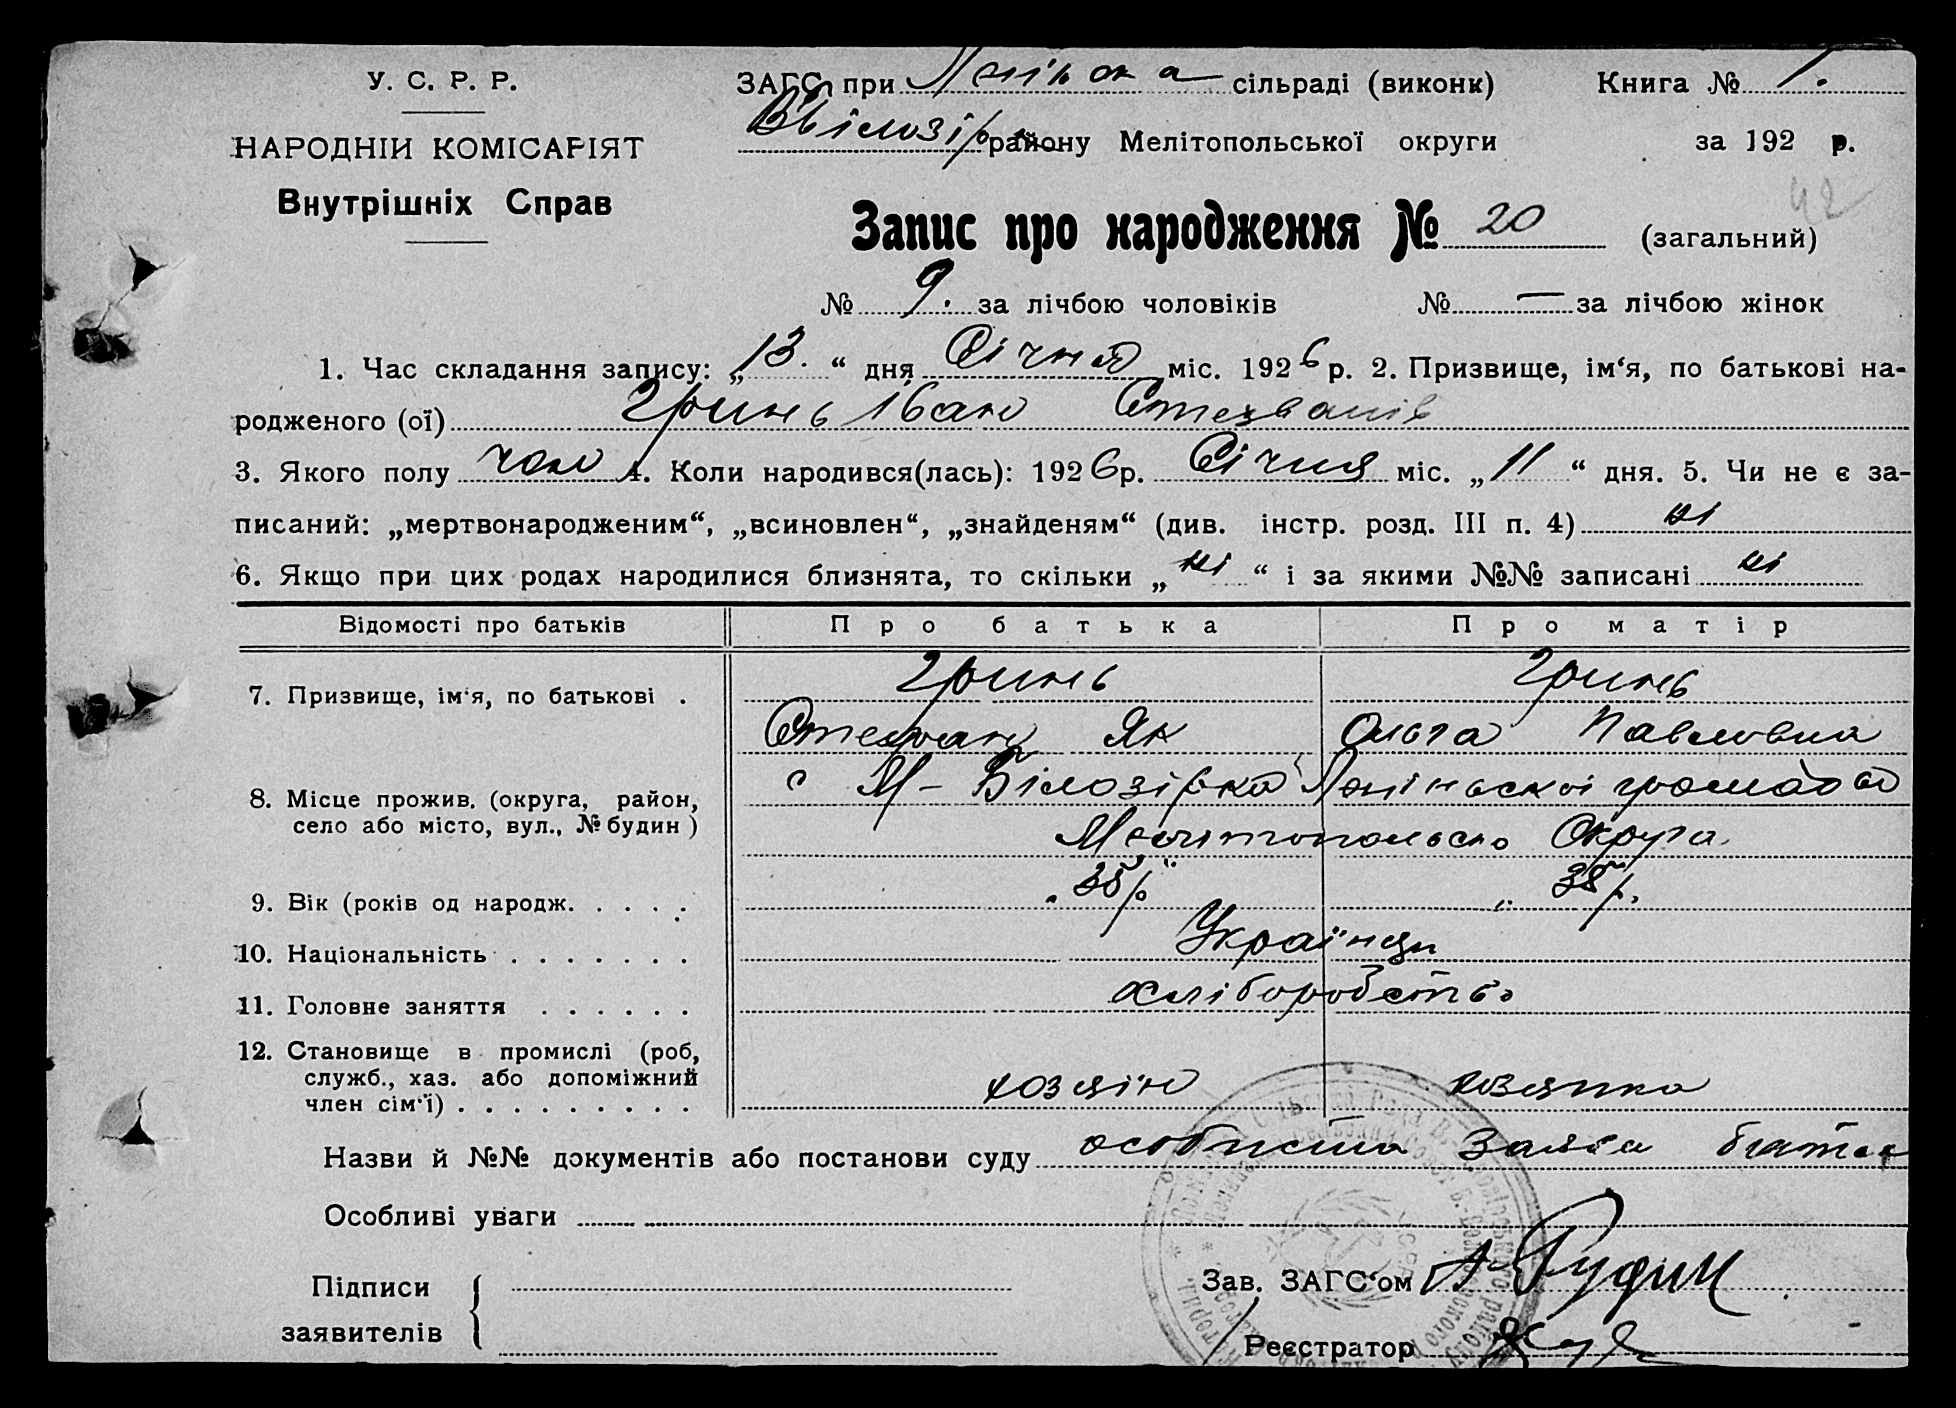 У. С. Р. Р.
НАРОДНІЙ КОМІСАРІЯТ
Внутрішніх Справ
ЗАГС при сільраді (виконк) Книга № 1.
району Мелітопольської округи за 192 р.
42
Запис про народження № 20 (загальний)
№ 9. за лічбою чоловіків № — за лічбою жінок
1. Час складання запису: „13.“ дня Січня міс. 1926 р. 2. Призвище, ім‘я, по батькові на-
родженого (ої) Гринь Іван Степанів
3. Якого полу чол 4. Коли народився(лась): 1926р. Січня міс. „11“ дня. 5. Чи не є за-
писаний: „мертвонародженим“, „всиновлен“, „знайденям“ (див. інстр. розд. III п. 4) ні
6. Якщо при цих родах народилися близнята, то скільки „ні“ і за якими №№ записані ні
Відомості про батьків Про батька Про матір
7. Призвище, ім‘я, по батькові . Гринь Гринь
Степан Як Ольга Павловна
8. Місце прожив. (округа, район, с М-Білозірка громади
село або місто, вул., № будин) Округа
9. Вік (років од народж. . . . . 38р.
10. Національність . . . . . . . Українци
11. Головне заняття . . . . . . хліборобство
12. Становище в промислі (роб,
служб., хаз. або допоміжний
член сім‘ї) . . . . . . . . . . хозяїн хозяйка
Назви й №№ документів або постанови суду особиста заява
Особливі уваги
Підписи
заявителів
Зав. ЗАГС‘ом
Реєстратор